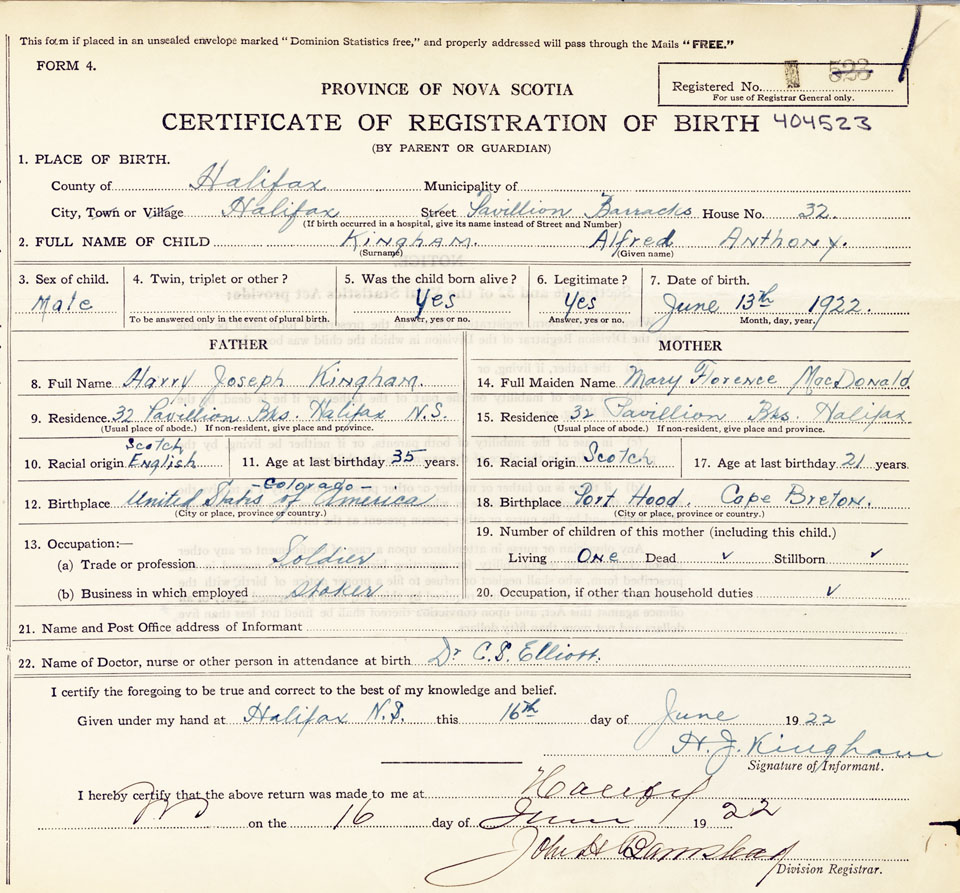 This form if placed in an unsealed envelope marked "Dominion Statistics free," and properly addressed will pass through the Mails "FREE."
FORM 4.
Registered No. 523
For use of Registrar General only.
PROVINCE OF NOVA SCOTIA
CERTIFICATE OF REGISTRATION OF BIRTH 404523
(BY PARENT OR GUARDIAN)
1. PLACE OF BIRTH.
County of Halifax Municipality of
City, Town or Village Halifax Street Pavillion Barracks House No. 32.
(If birth occurred in a hospital, give its name instead of Street and Number)
2. FULL NAME OF CHILD Kingham. Alfred Anthony.
(Surname) (Given name)
3. Sex of child. 4. Twin, triplet or other? 5. Was the child born alive? 6. Legitimate? 7. Date of birth.
Male Yes Yes June 13th 1922.
To be answered only in the event of plural birth. Answer, yes or no. Answer, yes or no. Month, day, year.
FATHER MOTHER
8. Full Name Harry Joseph Kingham. 14. Full Maiden Name Mary Florence MacDonald
9. Residence. 32 Pavillion Bks. Halifax N.S. 15. Residence 32 Pavillion Bks Halifax
(Usual place of abode.) If non-resident, give place and province. (Usual place of abode.) If non-resident, give place and province.
Scotch
10. Racial origin English 11. Age at last birthday 35 years. 16. Racial origin Scotch 17. Age at last birthday 21 years.
- Colorado -
12. Birthplace United States of America 18. Birthplace Port Hood. Cape Breton.
(City or place, province or country.) (City or place, province or country.)
13. Occupation:— 19. Number of children of this mother (including this child.)
(a) Trade or profession Soldier Living One Dead ✓ Stillborn ✓
(b) Business in which employed Stoker 20. Occupation, if other than household duties ✓
21. Name and Post Office address of Informant
22. Name of Doctor, nurse or other person in attendance at birth Dr C.S. Elliott.
I certify the foregoing to be true and correct to the best of my knowledge and belief.
Given under my hand at Halifax N.S. this 16th day of June 1922
H. J. Kingham
Signature of Informant.
I hereby certify that the above return was made to me at Halifax
on the 16 day of June 1922
John H Barnstead
Division Registrar.